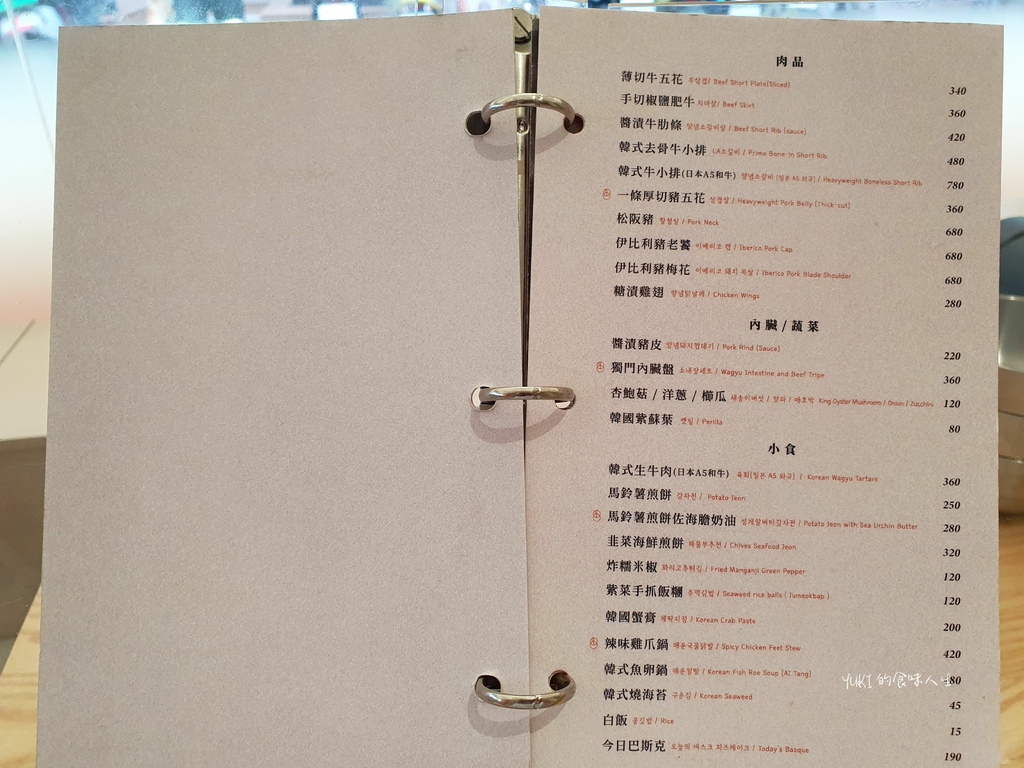 肉品
薄切牛五花 우삼겹/ Beef Short Plate(Sliced) 340
手切椒鹽肥牛 치마살/ Beef Skirt 360
醬漬牛肋條 양념소갈비살 / Beef Short Rib (sauce) 420
韓式去骨牛小排 LA소갈비 / Prime Bone-in Short Rib 480
韓式牛小排(日本A5和牛) 양념소갈비 (일본 A5 와규) / Heavyweight Boneless Short Rib 780
一條厚切豬五花 삼겹살 / Heavyweight Pork Belly (Thick-cut) 360
松阪豬 항정살 / Pork Neck 680
伊比利豬老饕 이베리코 캡 / Iberico Pork Cap 680
伊比利豬梅花 이베리코 돼지 목살 / Iberico Pork Blade Shoulder 680
糖漬雞翅 양념닭날개 / Chicken Wings 280
內臟/蔬菜
醬漬豬皮 양념돼지껍데기 / Pork Rind (Sauce) 220
獨門內臟盤 소내장세트 / Wagyu Intestine and Beef Tripe 360
杏鮑菇 / 洋蔥 / 櫛瓜 새송이버섯 / 양파 / 애호박 King Oyster Mushroom / Onion / Zucchini 120
韓國紫蘇葉 깻잎 / Perilla 80
小食
韓式生牛肉(日本A5和牛) 육회(일본 A5 와규) / Korean Wagyu Tartare 360
馬鈴薯煎餅 감자전 / Potato Jeon 250
馬鈴薯煎餅佐海膽奶油 성게알버터감자전 / Potato Jeon with Sea Urchin Butter 280
韭菜海鮮煎餅 해물부추전 / Chives Seafood Jeon 320
炸糯米椒 꽈리고추튀김 / Fried Manganji Green Pepper 120
紫菜手抓飯糰 주먹김밥 / Seaweed rice balls ( Jumeokbap ) 120
韓國蟹膏 게딱지장 / Korean Crab Paste 200
辣味雞爪鍋 매운국물닭발 / Spicy Chicken Feet Stew 420
韓式魚卵鍋 매운알탕 / Korean Fish Roe Soup (Al Tang) 80
韓式燒海苔 구운김 / Korean Seaweed 45
白飯 공깃밥 / Rice 15
今日巴斯克 오늘의 바스크 치즈케이크 / Today's Basque 190
YUKI的食味人生